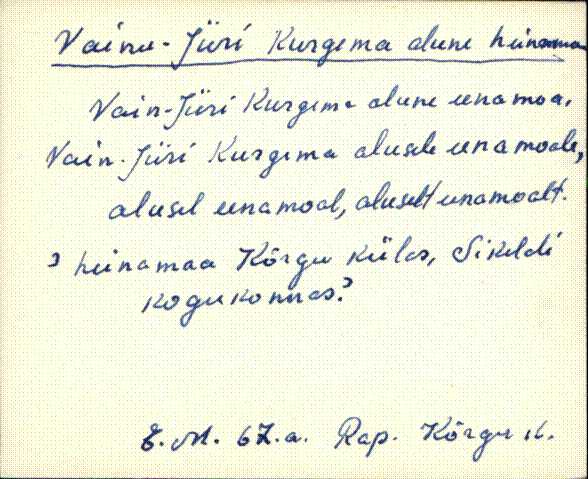 Vainu-Jüri Kurgema alune heinamaa
Vain-Jüri Kurgema alune eenamoa.
Vain-Jüri Kurgema alusele eenamoale,
alusel eenamoal, aluselt eenamoalt.
heinamaa Kõrgu külas, Sikeldi
kogukonnas.
E. M. 67.a. Rap. Kõrgu k.